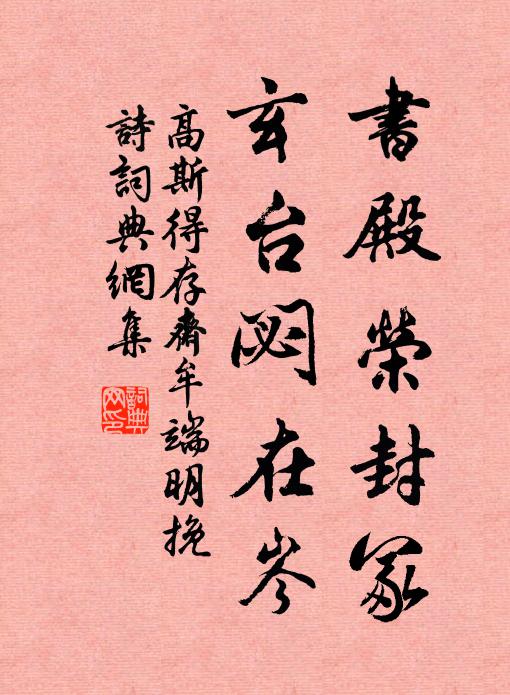 書殿榮封冢
玄台閟在岑
高斯得存齋牟端明挽
詩詞典網集
詞典
网印